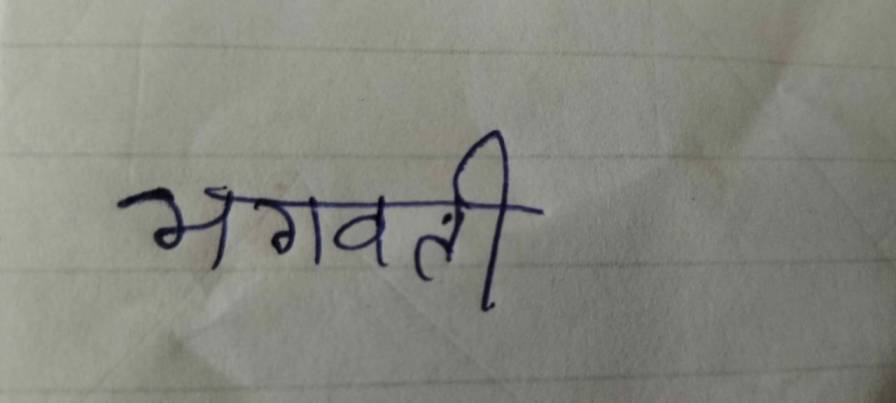 भगवती